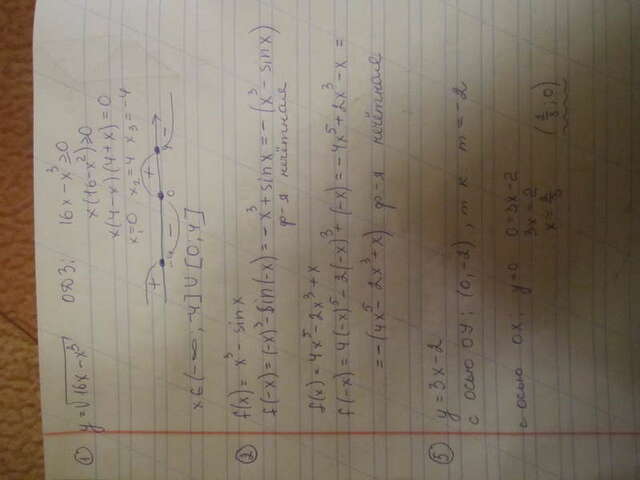 ① y = √(16x - x³) ОДЗ: 16x - x³ ≥ 0
x(16 - x²) ≥ 0
x(4 - x)(4 + x) = 0
x₁ = 0 x₂ = 4 x₃ = -4
+ - + -
-4 0 4
x ∈ (-∞; -4] ∪ [0; 4]
② f(x) = x³ - sin x
f(-x) = (-x)³ - sin(-x) = -x³ + sin x = -(x³ - sin x)
ф-я нечётная
f(x) = 4x⁵ - 2x³ + x
f(-x) = 4(-x)⁵ - 2(-x)³ + (-x) = -4x⁵ + 2x³ - x =
= -(4x⁵ - 2x³ + x) ф-я нечётная
⑤ y = 3x - 2
с осью OY: (0, -2), т к m = -2
с осью OX: y = 0 0 = 3x - 2
3x = 2
x = 2/3 (2/3; 0)